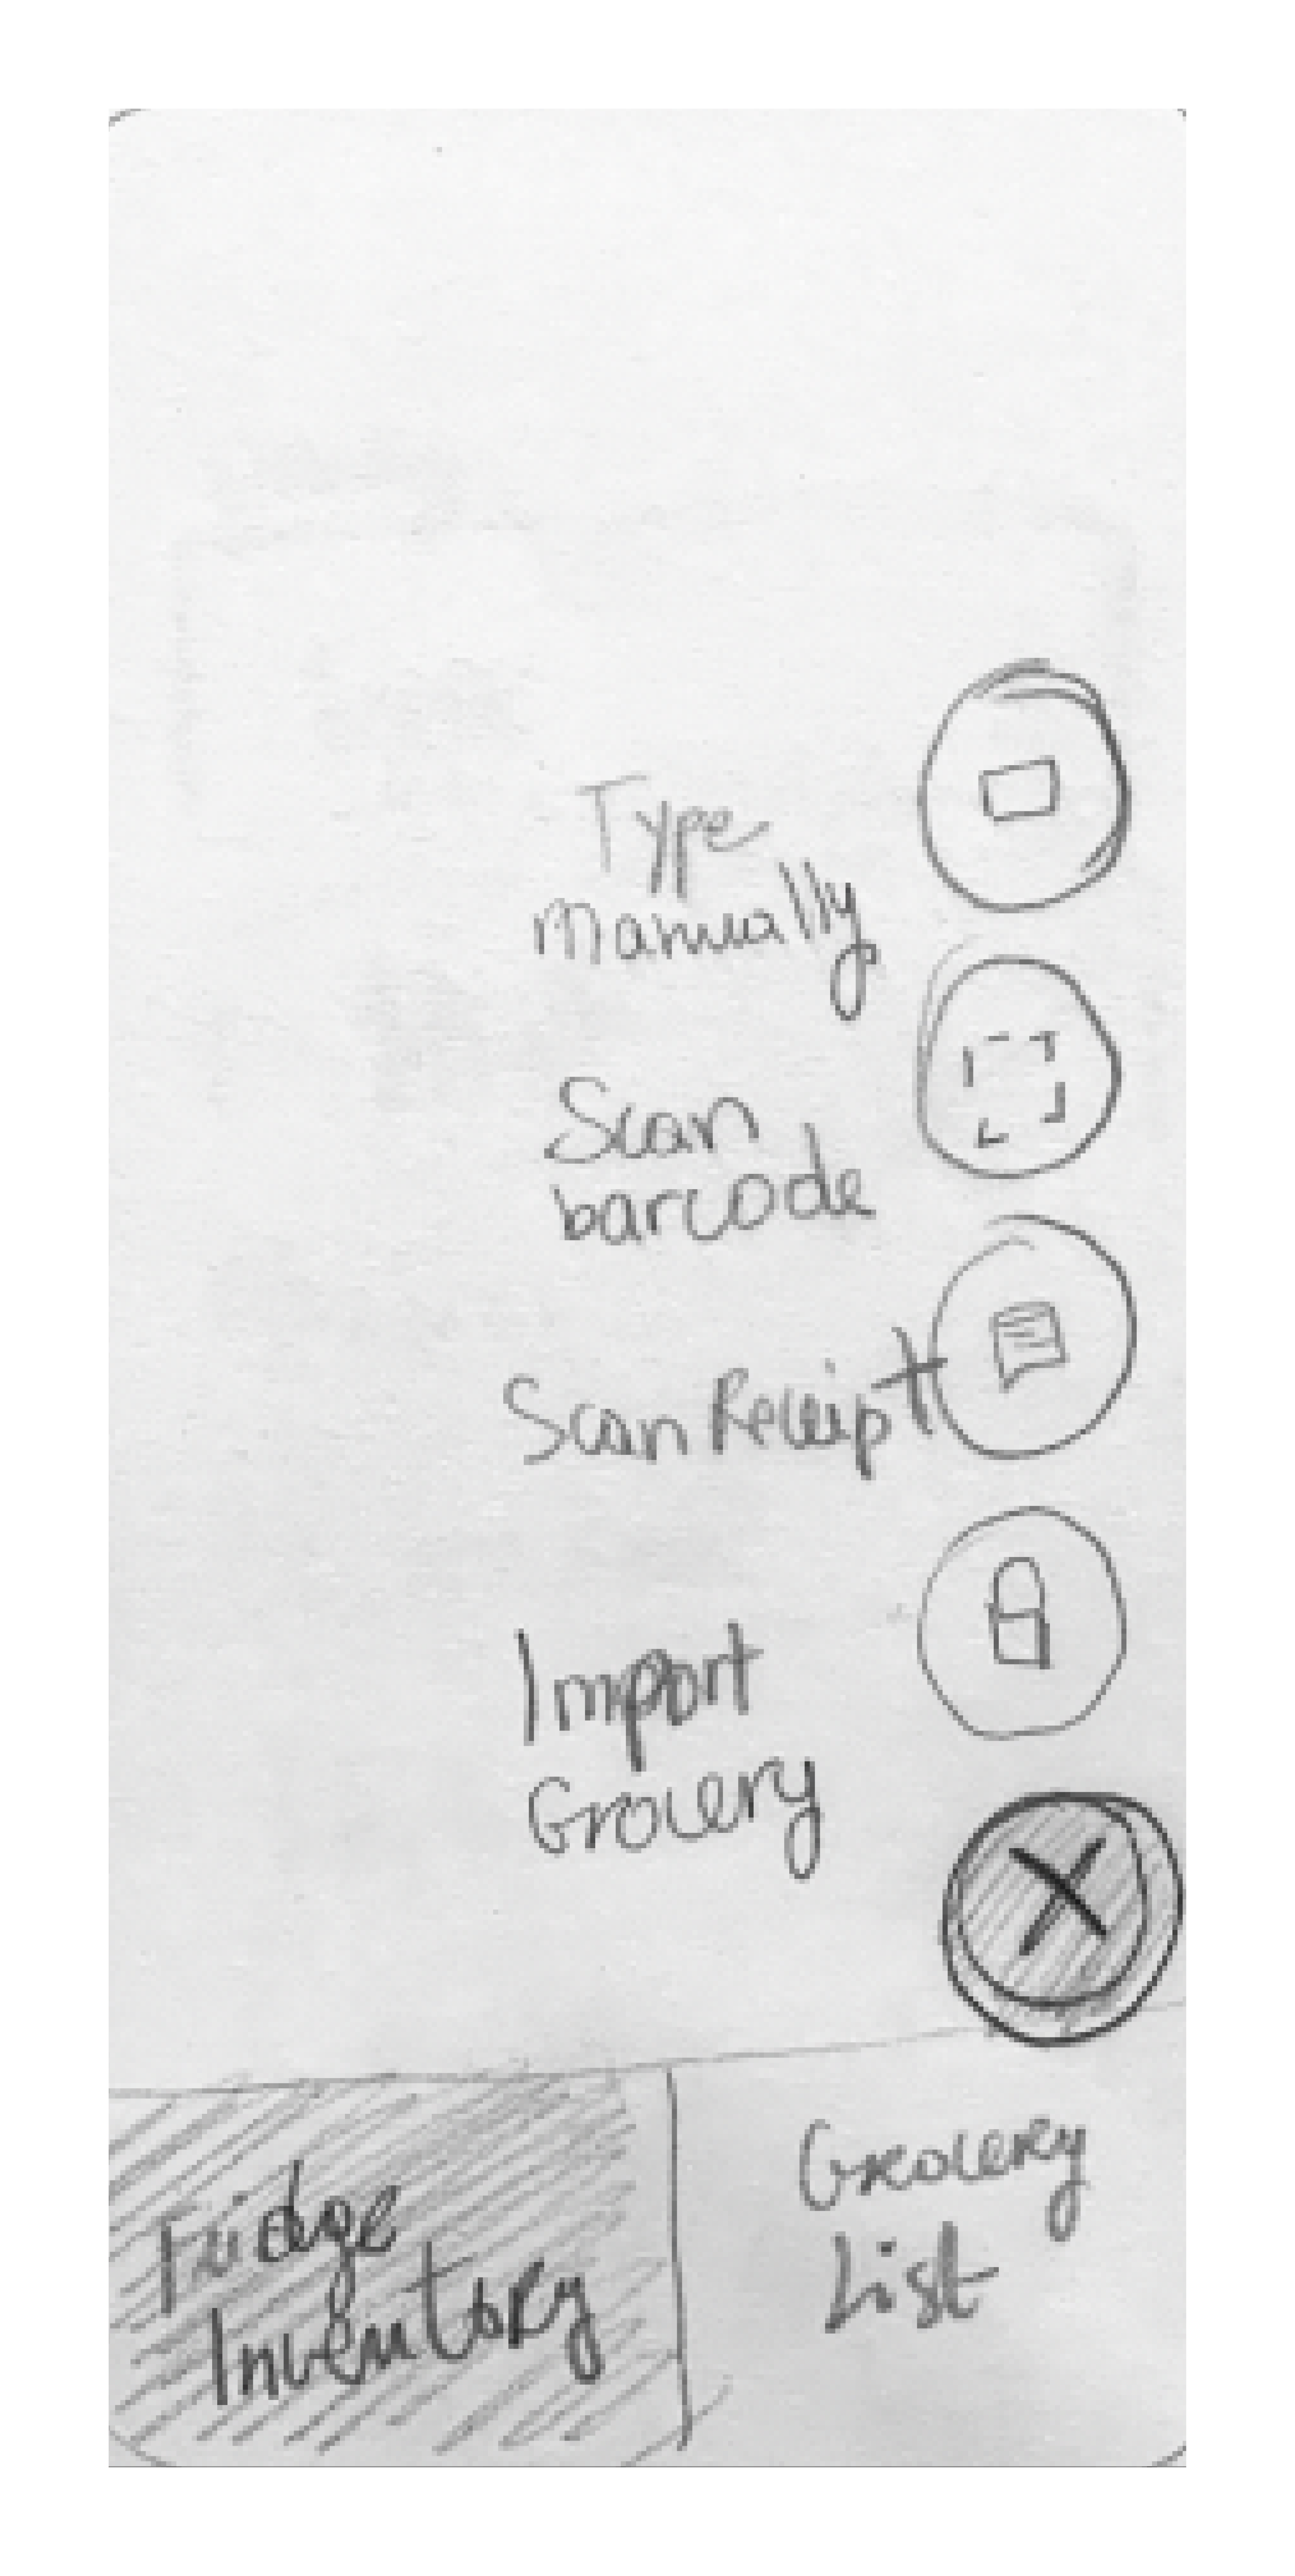 Type
Manually
Scan
barcode
Scan Receipt
Import
Grocery
Fridge
Inventory
Grocery
List